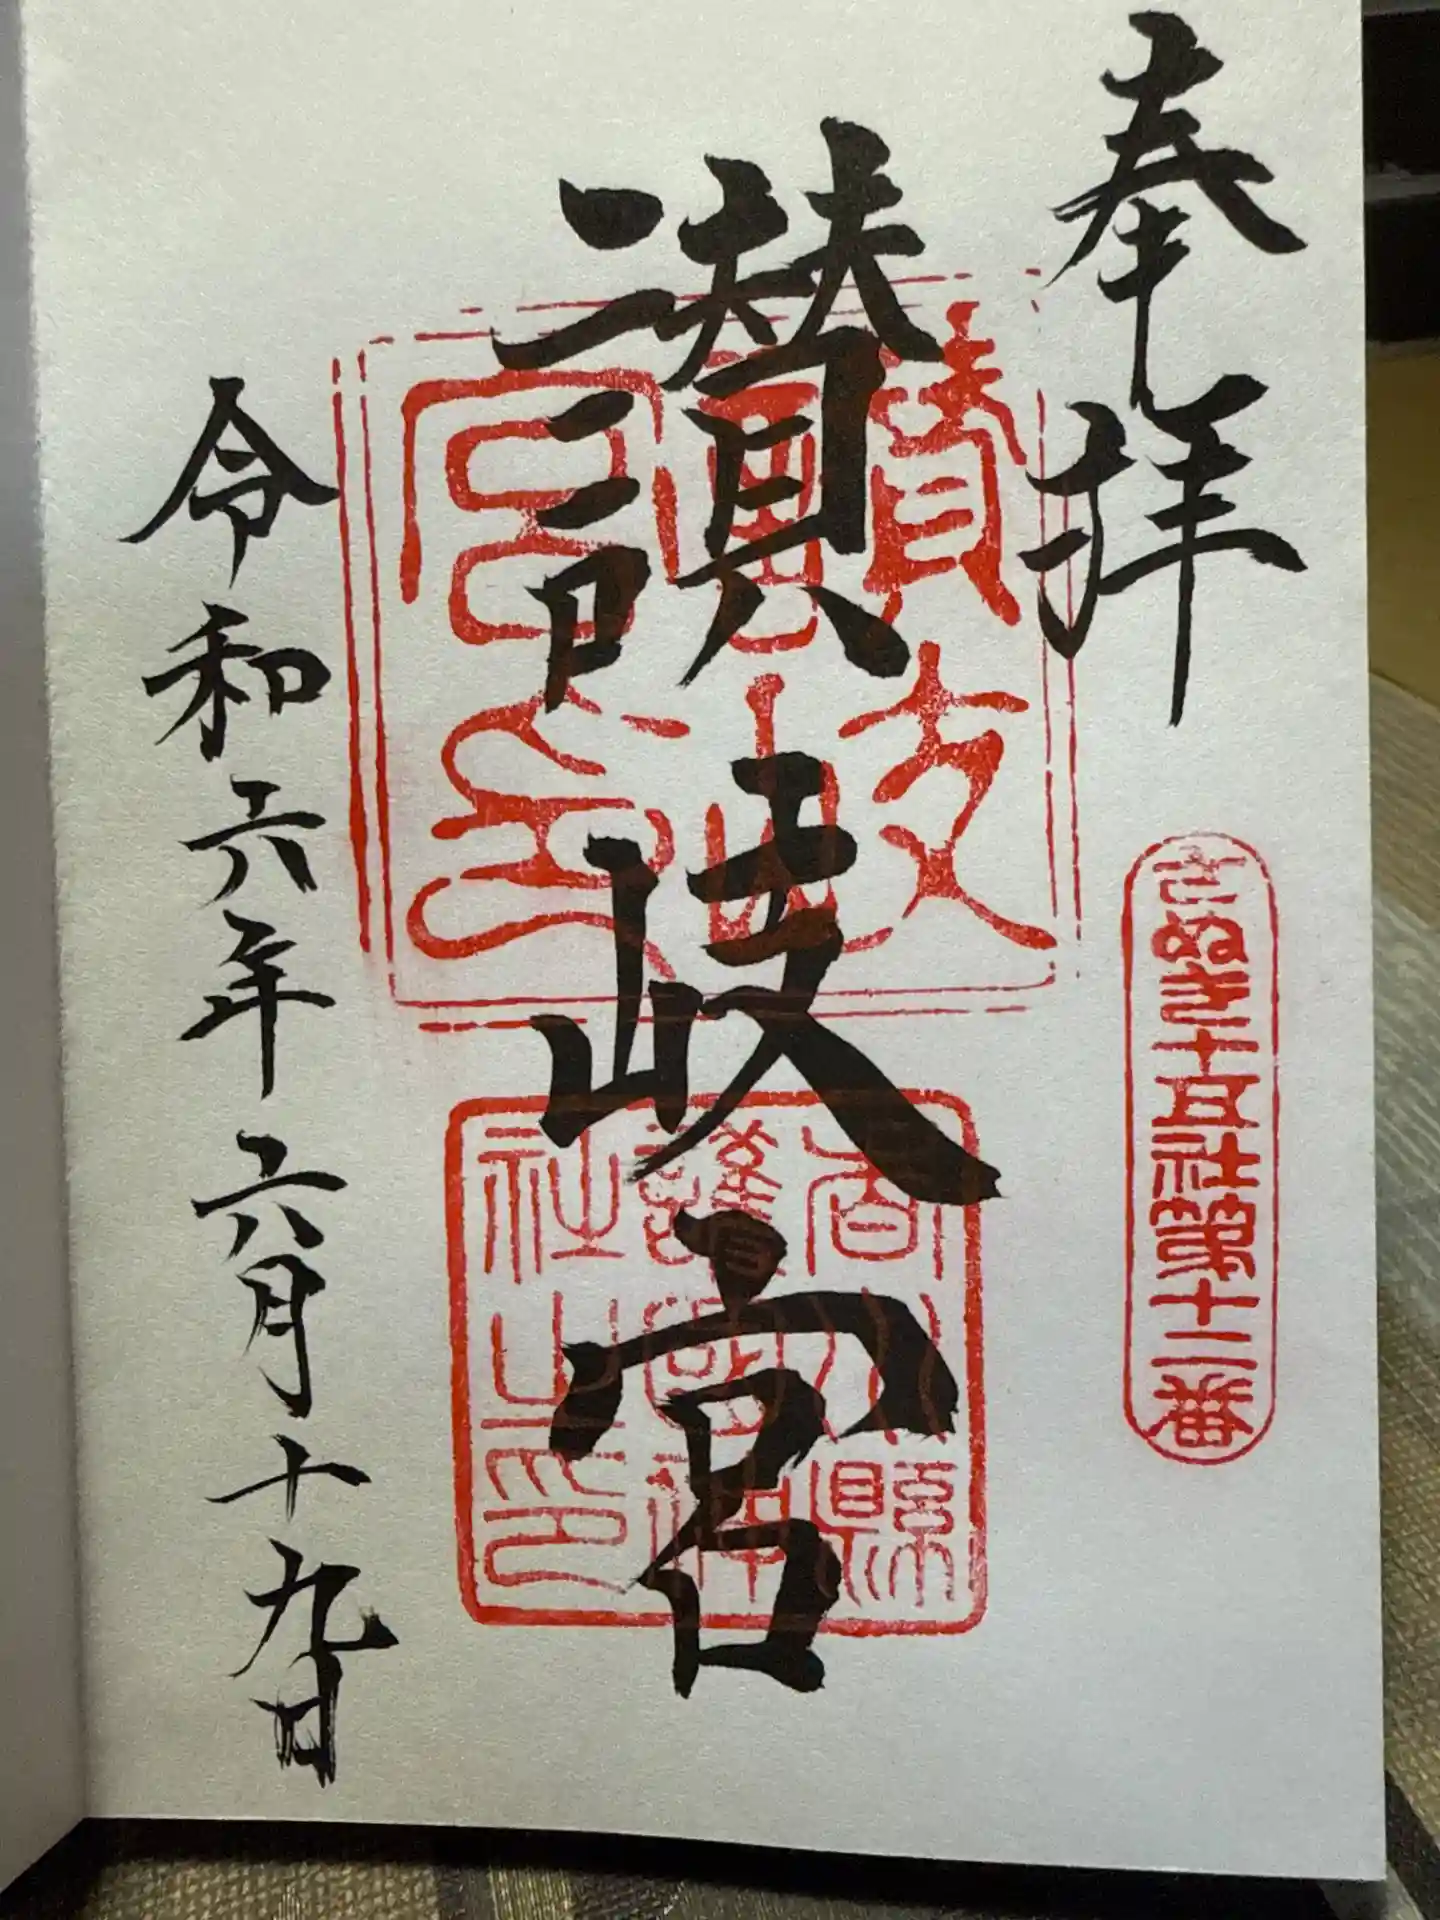 奉拝
さぬき十五社第十二番
讃岐宮
香川縣護國神社之印
令和六年六月十九日